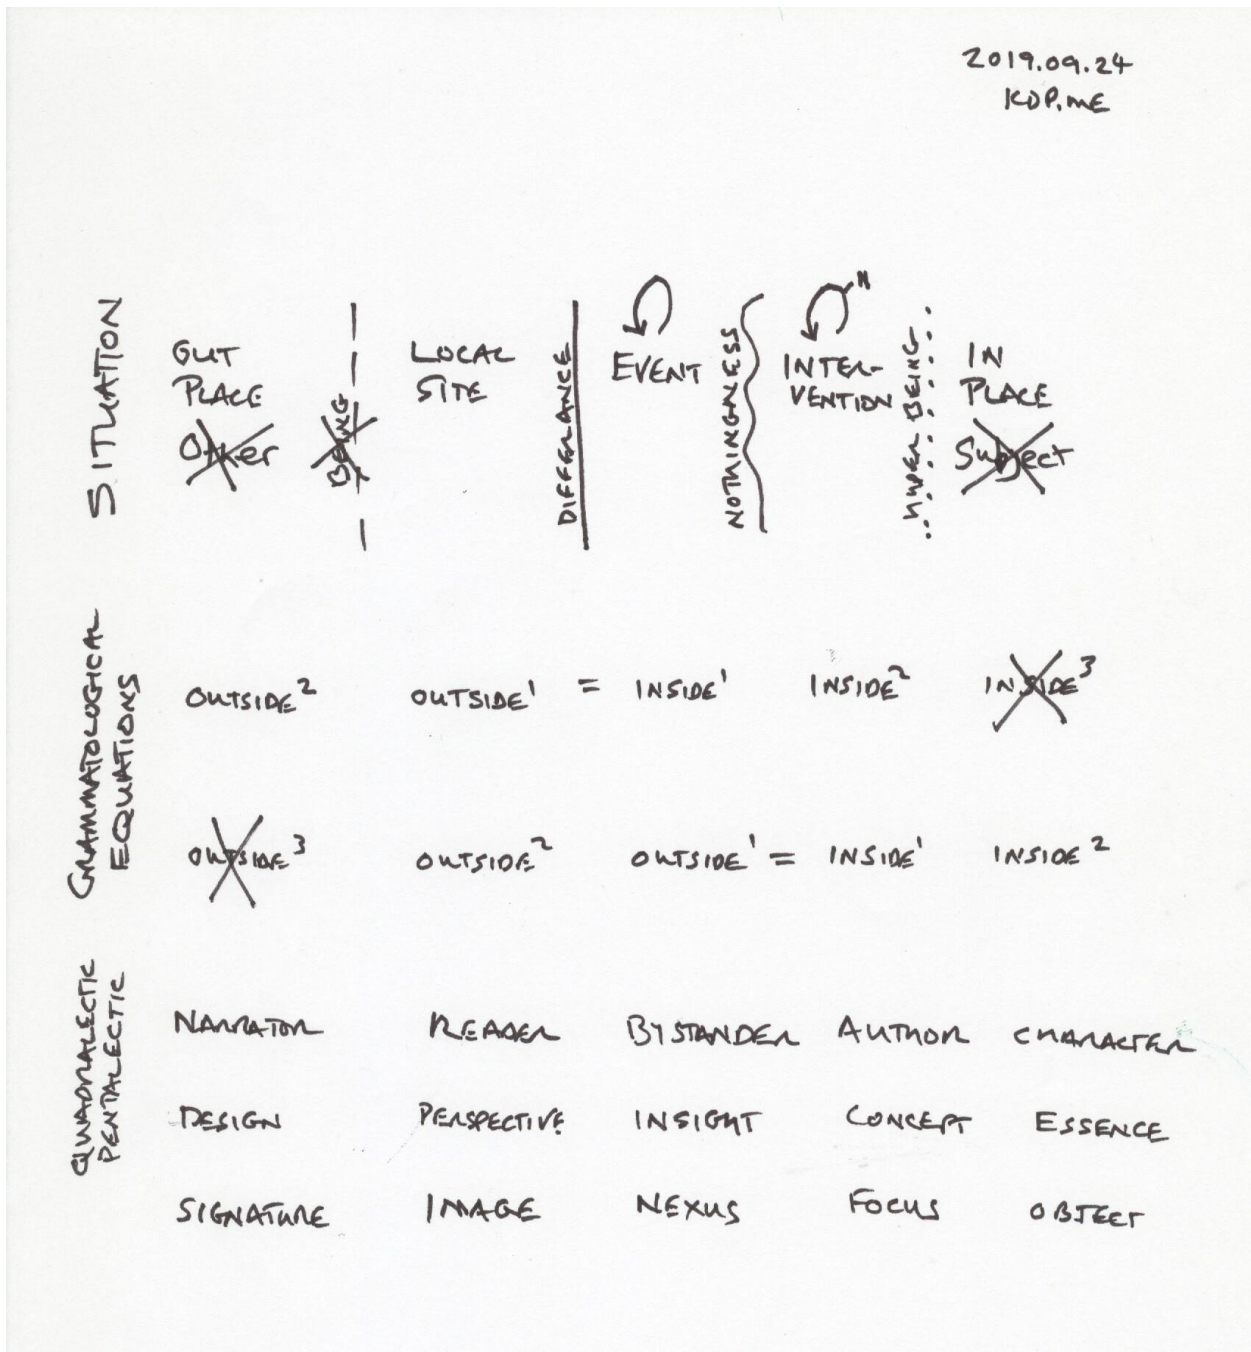 2019.09.24
KDP.ME
SITUATION
GUT PLACE
Other
BEING
LOCAL SITE
DIFFERANCE
EVENT
NOTHINGNESS
N
INTER-
VENTION
HYPER BEING
IN PLACE
Subject
GRAMMATOLOGICAL
EQUATIONS
OUTSIDE² OUTSIDE¹ = INSIDE¹ INSIDE² INSIDE³
OUTSIDE³ OUTSIDE² OUTSIDE¹ = INSIDE¹ INSIDE²
QUADRALECTIC
PENTALECTIC
NARRATOR READER BYSTANDER AUTHOR CHARACTER
DESIGN PERSPECTIVE INSIGHT CONCEPT ESSENCE
SIGNATURE IMAGE NEXUS FOCUS OBJECT